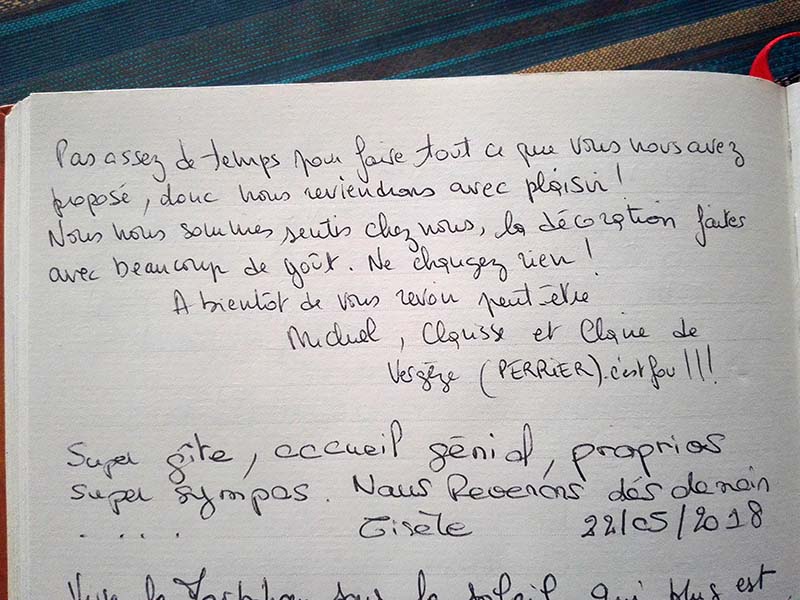 Pas assez de temps pour faire tout ce que vous nous avez
proposé, donc nous reviendrons avec plaisir !
Nous nous sommes sentis chez nous, la décoration faites
avec beaucoup de goût. Ne changez rien !
A bientôt de vous revoir peut-être
Michel, Clarisse et Claire de
Vergèze (PERRIER). c'est fou !!!
Super gîte, accueil génial, proprios
super sympas. Nous Reverons dés demain
.... Gisèle 22/05/2018
sous le soleil qui plus est